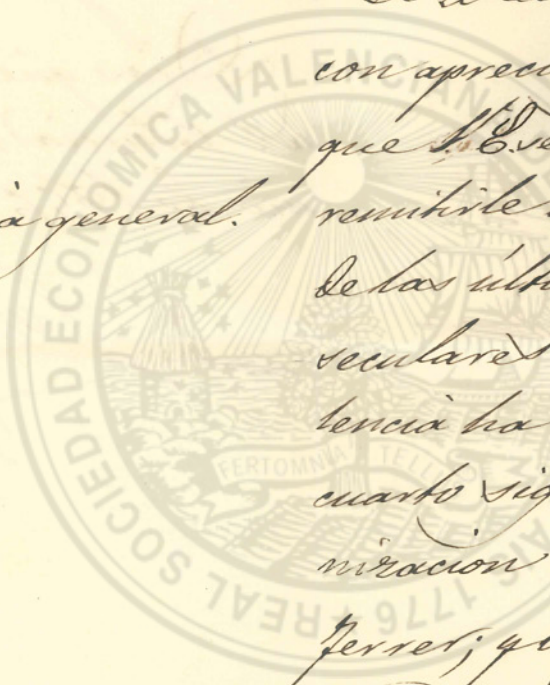 con apreci
que V.E. se
a general.
remitirle
de las últi
seculares
lencia ha
cuarto sig
nizacion
Ferrer; qu
REAL SOCIEDAD ECONOMICA VALENCIAN
1776
FERTOMNIA TELL